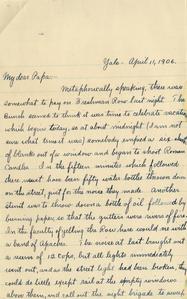 Yale. April 11, 1906.
My dear Papa:
Metaphorically speaking, there was
somewhat to pay on Freshman Row last night. The
Bunch seemed to think it was time to celebrate vacation
which begins today, so at about midnight (I am not
sure what time it was) somebody emptied a six shot
of blanks out of a window and began to shoot Roman
Candles. In the fifteen minutes which followed
there must have been fifty water bottles thrown down
on the street, just for the noise they made. Another
stunt was to throw down a bottle of oil followed by
burning paper, so that the gutters were rivers of fire.
In the faculty of yelling the Row here could vie with
a band of Apaches. The noise at last brought out
a swarm of 12 cops, but all lights immediately
went out, and as the street light had been broken, they
could do little except rail at the empty windows
above them, and call out the night brigade to sweep